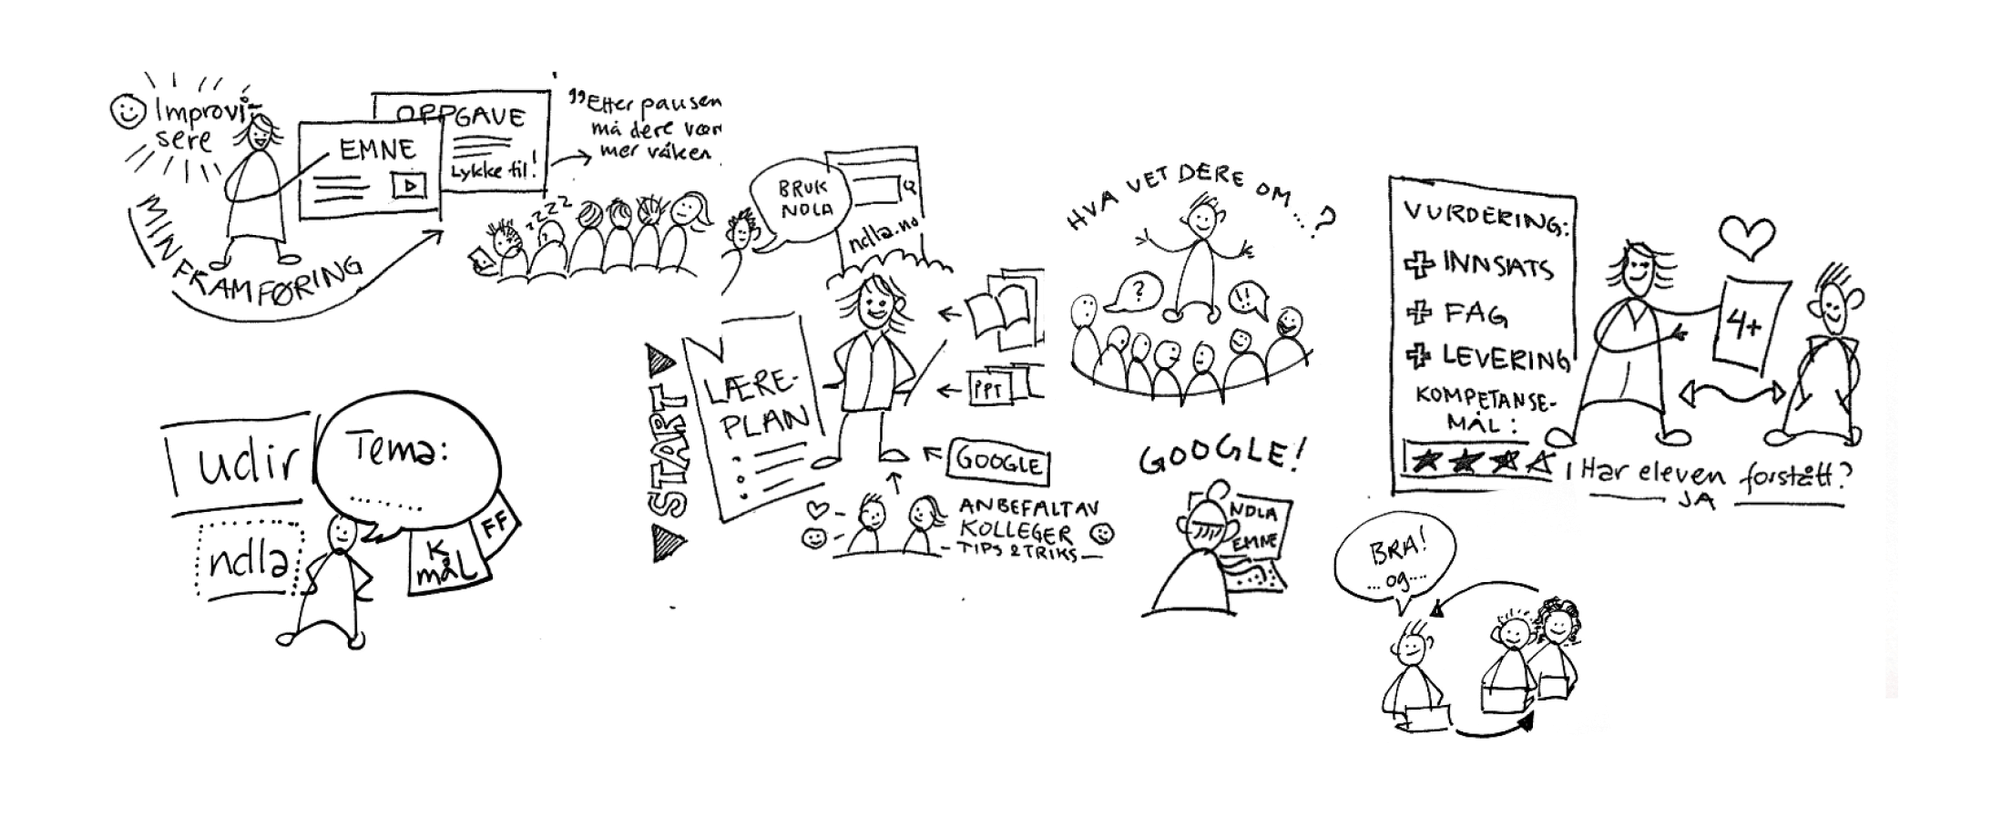 Improvi-
sere
MIN FRAMFØRING
EMNE
OPPGAVE
Lykke til!
"Etter pausen
må dere vær
mer våken
zzzz
BRUK
NDLA
ndla.no
START
LÆRE-
PLAN
PPT
GOOGLE
ANBEFALT AV
KOLLEGER
- TIPS & TRIKS -
udir
ndla
Tema:
......
K
mål
FF
HVA VET DERE OM...?
?
!!
GOOGLE!
NDLA
EMNE
VURDERING:
+ INNSATS
+ FAG
+ LEVERING
KOMPETANSE-
MÅL:
4+
Har eleven forstått?
JA
BRA!
...og....